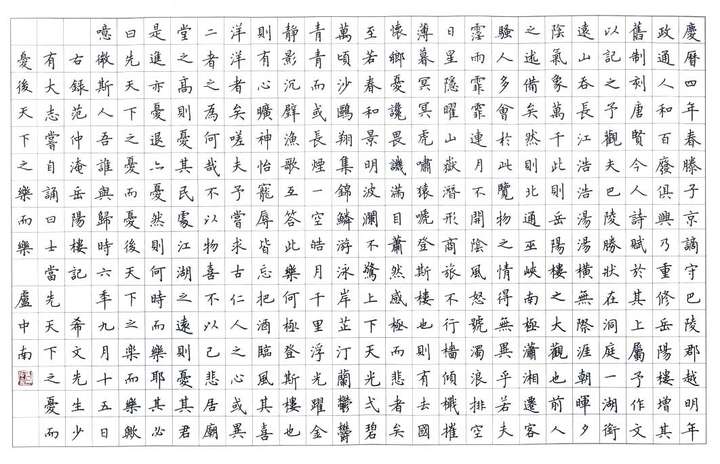 慶曆四年春滕子京謫守巴陵郡越明年
政通人和百廢俱興乃重修岳陽樓增其
舊制刻唐賢今人詩賦於其上屬予作文
以記之予觀夫巴陵勝狀在洞庭一湖銜
遠山吞長江浩浩湯湯橫無際涯朝暉夕
陰氣象萬千此則岳陽樓之大觀也前人
之述備矣然則北通巫峽南極瀟湘遷客
騷人多會於此覽物之情得無異乎若夫
霪雨霏霏連月不開陰風怒號濁浪排空
日星隱曜山嶽潛形商旅不行檣傾檝摧
薄暮冥冥虎嘯猿啼登斯樓也則有去國
懷鄉憂讒畏譏滿目蕭然感極而悲者矣
至若春和景明波瀾不驚上下天光弌碧
萬頃沙鷗翔集錦鱗游泳岸芷汀蘭鬱鬱
青青而或長煙一空皓月千里浮光躍金
靜影沉璧漁歌互答此樂何極登斯樓也
則有心曠神怡寵辱皆忘把酒臨風其喜
洋洋者矣嗟夫予嘗求古仁人之心或異
二者之為何哉不以物喜不以己悲居廟
堂之高則憂其民處江湖之遠則憂其君
是進亦憂退亦憂然則何時而樂耶其必
曰先天下之憂而憂後天下之樂而樂歟
噫微斯人吾誰與歸時六年九月十五日
右錄范仲淹岳陽樓記 希文先生少
有大志嘗自誦曰士當先天下之憂而
憂後天下之樂而樂 盧中南